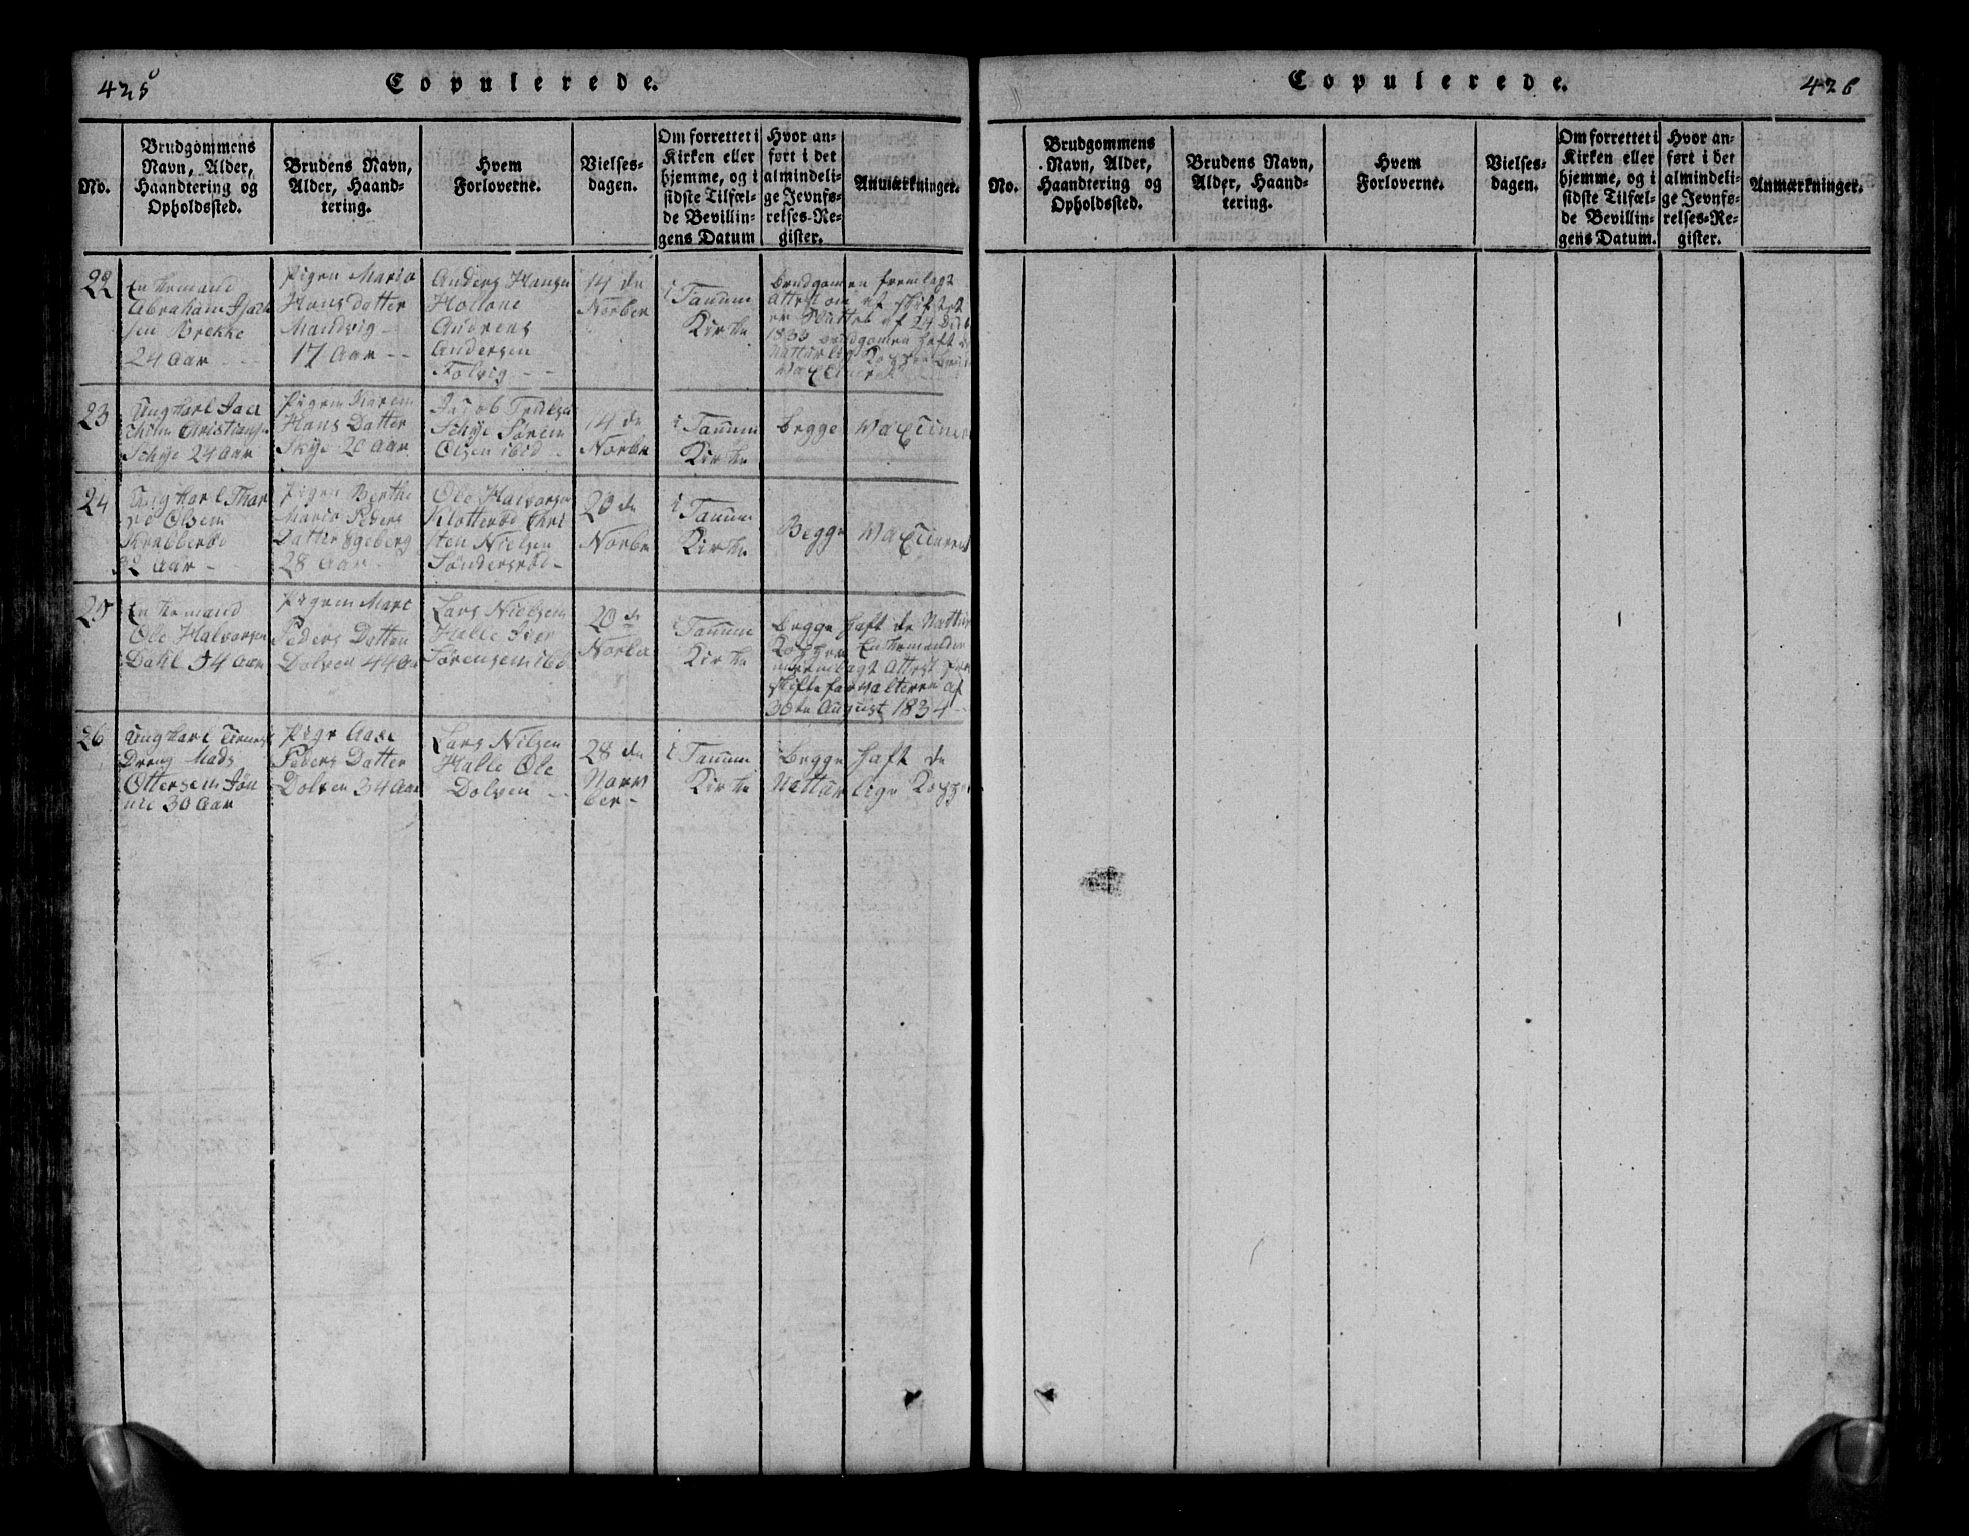 425
Copulerede.
No.
Brudgommens
Navn, Alder,
Haandtering og
Opholdssted.
Brudens Navn,
Alder, Haand-
tering.
Hvem
Forloverne.
Vielses-
dagen.
Om forrettet i
Kirken eller
hjemme, og i
sidste Tilfæl-
de Bevillin-
gens Datum
Hvor an-
ført i det
almindeli-
ge Jevnfø-
relses-Re-
gister.
Anmærkninger.
22
Enkemand
Abraham Isach
sen Brekke
24 Aar
Pigen Maria
Hans Datter
Mandvig
17 Aar
Anders Hansen
Andreas
Andersen
Folvig
14 de
Norber
i Tanum
Kirke
Brudgomen fremlagt
Attest om at skiftet
er Sluttet af 24
1833 brudgomen haft
Naturlig Kopper
Vaxcineret
23
Ung karl Jacob
Christians
Schije 24 Aar
Pigen Karen
Hans Datter
Skije 20 Aar
Jacob
Schije Søren
Olsen ibid
14 de
Norbr
i Tanum
Kirke
begge Vaxciner
24
Ung karl Thor
Olsen
32 Aar
Pigen Berthe
Maria Peders
Datter Egeberg
28 Aar
Ole Halvorsen
Klotterød Chri
sten Nielsen
Søndersrød
20 de
Norbr
i Tanum
Kirke
Begge Vaxcineret
25
Enkemand
Ole Halvorsen
Dahl 54 Aar
Pigen Mari
Peders Datter
Dolven 44 Aar
Lars Nielsen
Halle Iver
Sørensen ibd
20 de
Norber
i Tanum
Kirke
begge haft de Nattur
Kopper Enkemanden
fremlagt Attest fra
skifteforvalteren af
30te August 1834
26
Ung karl
Dreng Mads
Ottersen Jøn
nre 30 Aar
Pige Aase
Peders Datter
Dolven 34 Aar
Lars Nilsen
Halle Ole
Dolven
28 de
Novem
ber
i Tanum
Kirke
Begge haft de
Natturlige Kopper
Copulerede.
426
No.
Brudgommens
Navn, Alder,
Haandtering og
Opholdssted.
Brudens Navn,
Alder, Haand-
tering.
Hvem
Forloverne.
Vielses-
dagen.
Om forrettet i
Kirken eller
hjemme, og i
sidste Tilfæl-
de Bevillin-
gens Datum.
Hvor an-
ført i det
almindeli-
ge Jevnfø-
relses-Re-
gister.
Anmærkninger.